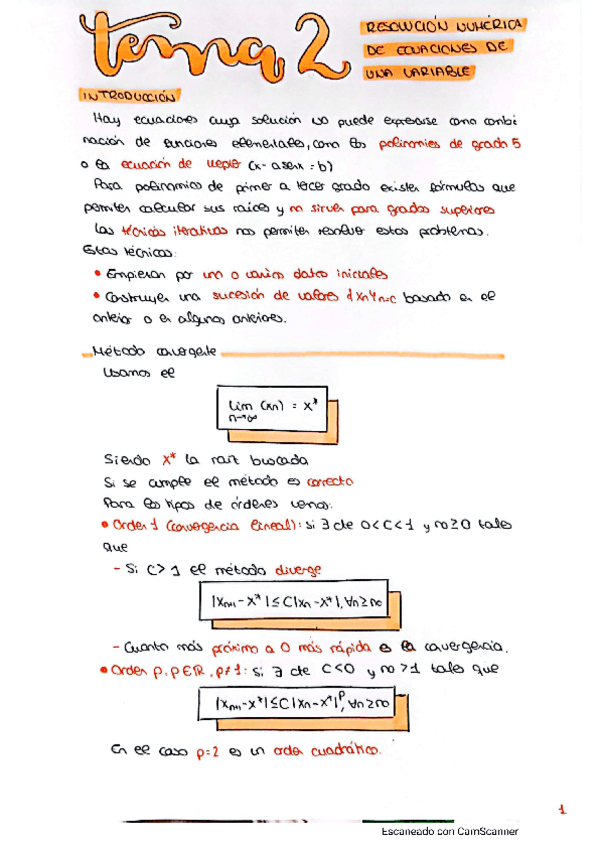 tema 2
RESOLUCIÓN NUMÉRICA
DE ECUACIONES DE
UNA VARIABLE
INTRODUCCIÓN
Hay ecuaciones cuya solución no puede expresarse como combi
nación de funciones elementales, como los polinomios de grado 5
o la ecuación de Kepler (x - a senx = b)
Para polinomios de primer a tercer grado existen fórmulas que
permiten calcular sus raíces y no sirven para grados superiores
Las técnicas iterativas nos permiten resolver estos problemas.
Estas técnicas:
• Empiezan por uno o varios datos iniciales
• Construyen una sucesión de valores {xn}n=c basado en el
anterior o en algunos anteriores.
Método convergente
Usamos el
lim (xn) = x*
n→∞
Siendo x* la raíz buscada
Si se cumple el método es correcto
Para los tipos de órdenes vemos:
• Orden 1 (convergencia lineal): si ∃ cte 0<C<1 y no≥0 tales
que
- Si C>1 el método diverge
|xn+1 - x*| ≤ C|xn - x*|, ∀n≥no
- Cuanto más próximo a 0 más rápida es la convergencia.
• Orden p, p∈ℝ, p≠1: si ∃ cte C<0 y no>1 tales que
|xn+1 - x*| ≤ C|xn - x*|^p, ∀n≥no
En el caso p=2 es un orden cuadrático.
1
Escaneado con CamScanner